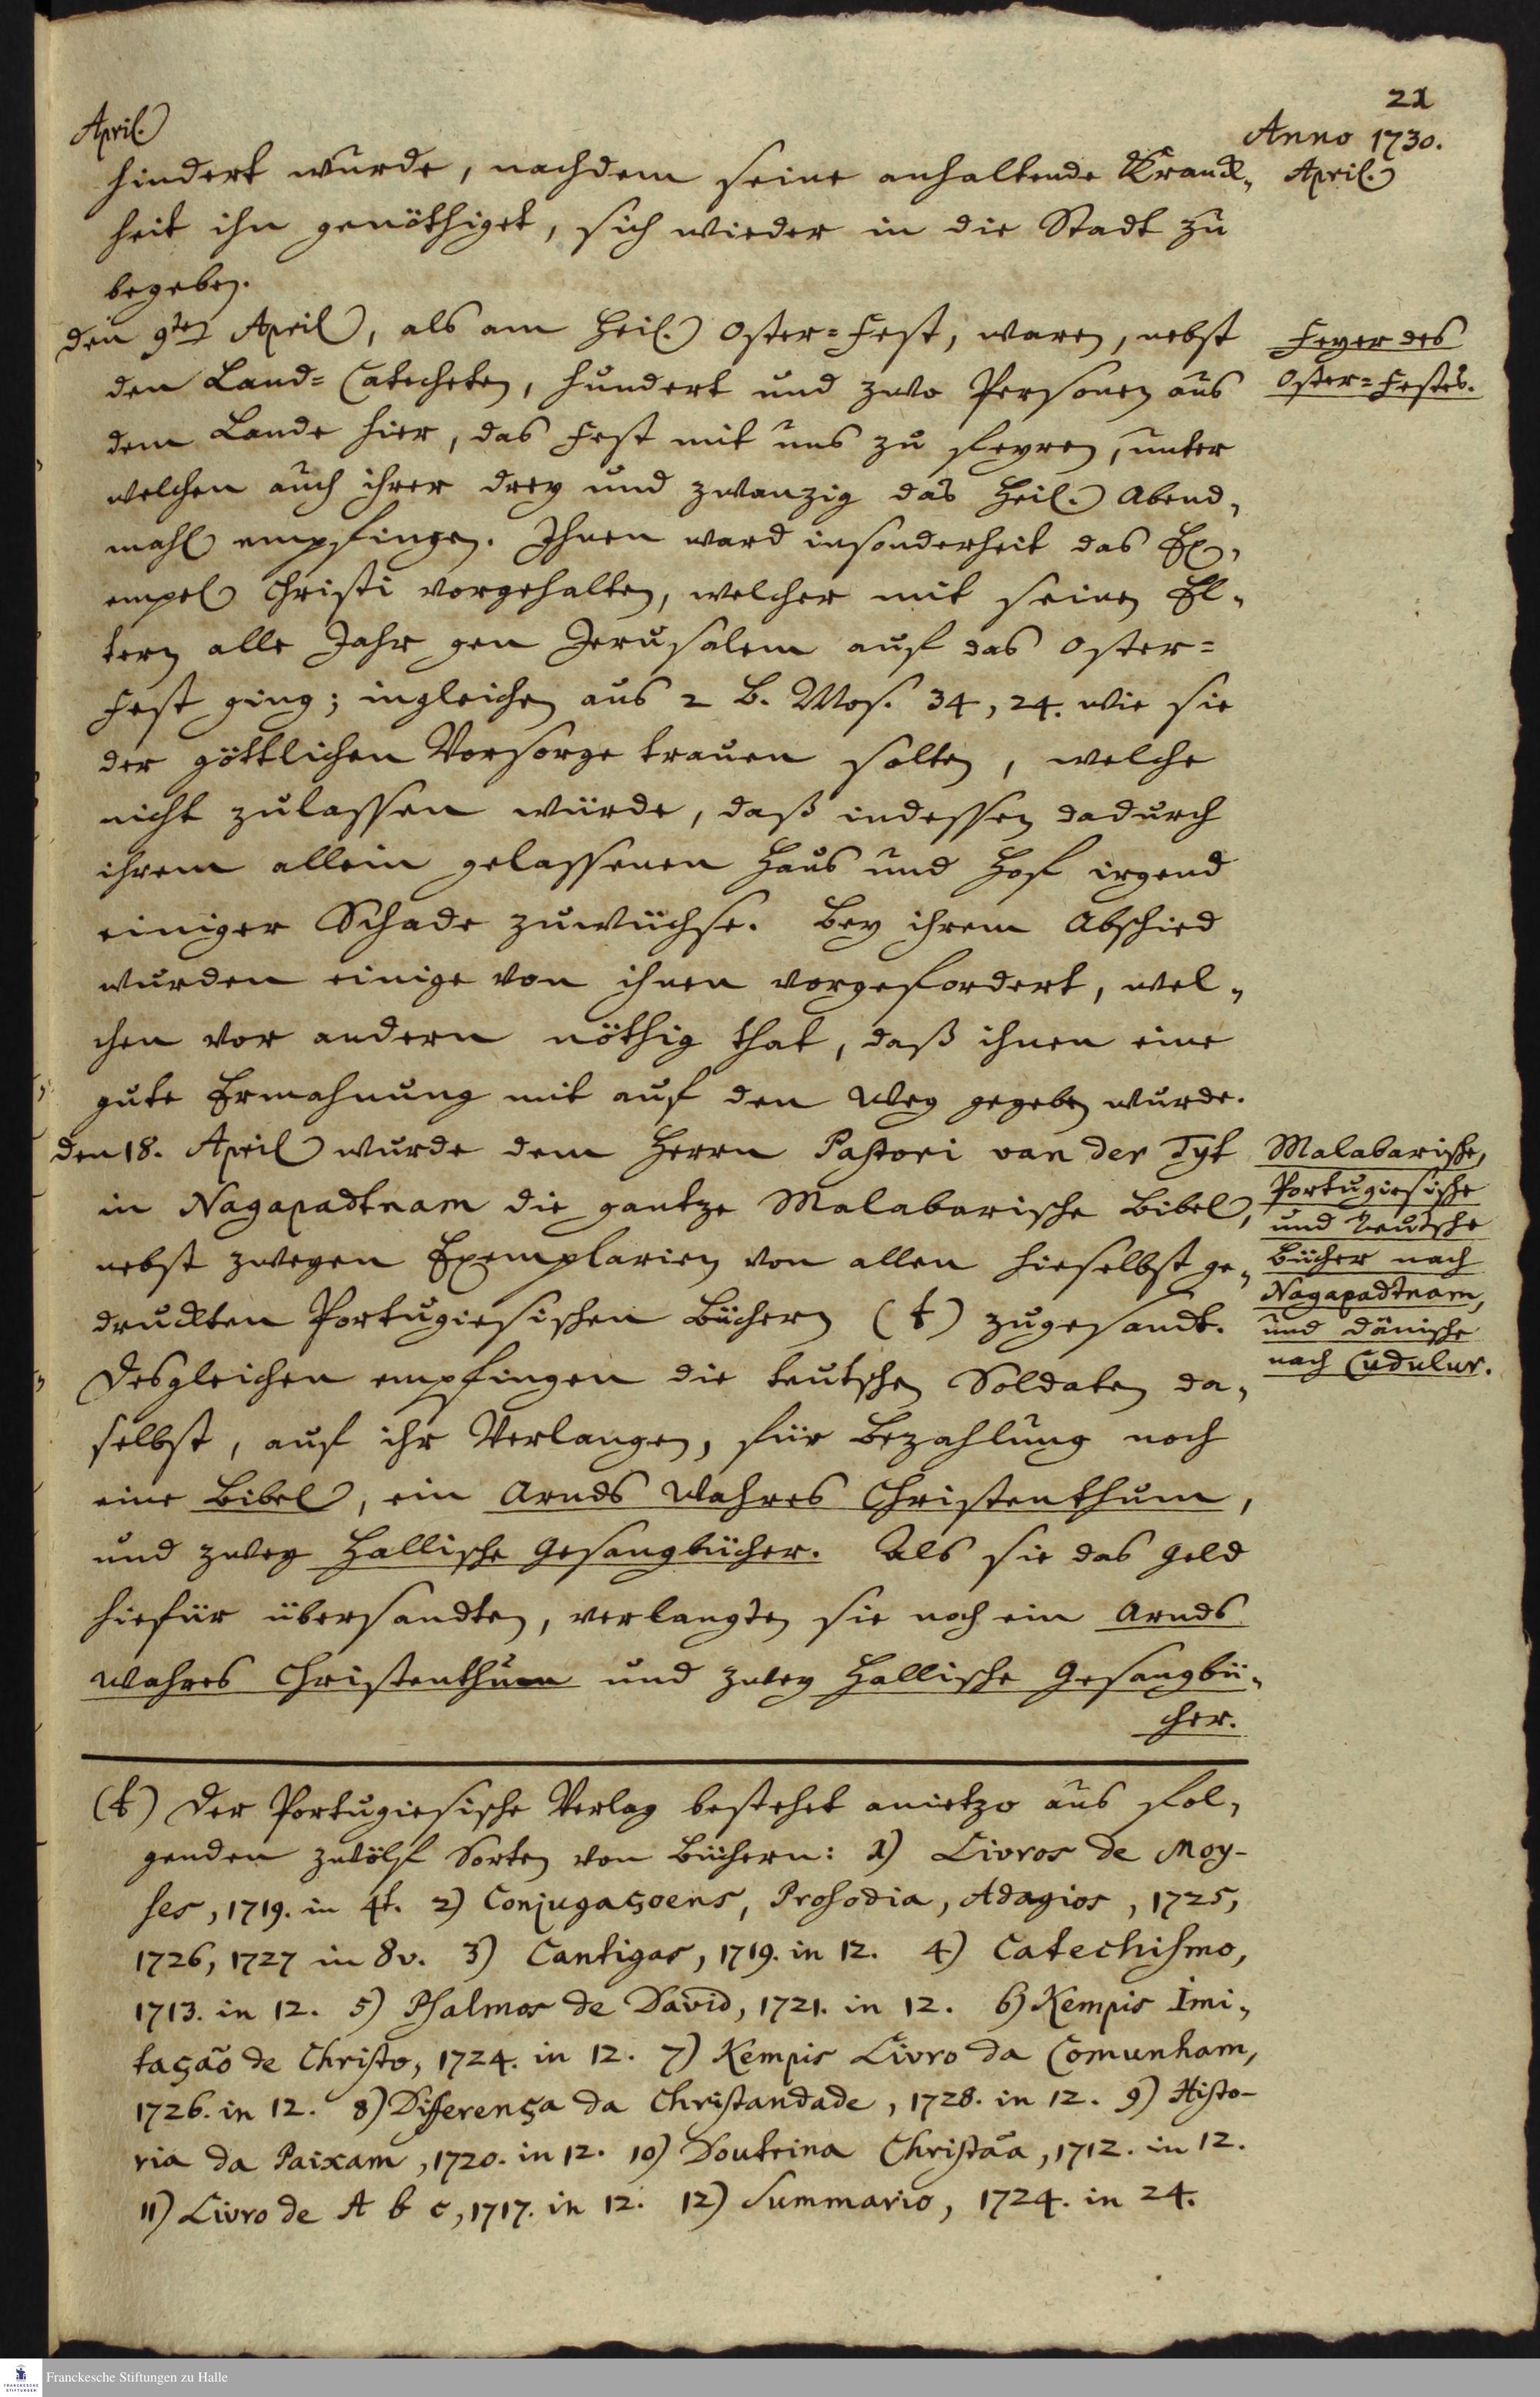 21
Anno 1730.
April.
April.
hindert wurde, nachdem seine anhaltende Kranck-
heit ihn genöthiget, sich wieder in die Stadt zu
begeben.
den 9ten April, als am Heil. Oster-Fest, waren, nebst
den Land-Catecheten, hundert und zwo Personen aus
dem Lande hier, das Fest mit uns zu feyren, unter
welchen auch ihrer drey und zwanzig das Heil. Abend-
mahl empfingen. Ihnen ward insonderheit das Ex-
empel Christi vorgehalten, welcher mit seinen El-
tern alle Jahr gen Jerusalem auf das Oster-
Fest ging; ingleichen aus 2 B. Mos. 34, 24. wie sie
der göttlichen Vorsorge trauen solten, welche
nicht zulassen würde, daß indessen dadurch
ihrem allein gelassenen Haus und Hof irgend
einiger Schade zuwüchse. Bey ihrem Abschied
wurden einige von ihnen vorgefordert, wel-
chen vor andern nöthig that, daß ihnen eine
gute Ermahnung mit auf den Weg gegeben wurde.
Feyer des
Oster-Festes.
den 18. April wurde dem Herrn Pastori van der Tyt
in Nagapadtnam die gantze Malabarische Bibel,
nebst zweyen Exemplarien von allen hieselbst ge-
druckten Portugiesischen Büchern (t) zugesandt.
Desgleichen empfingen die teutschen Soldaten da-
selbst, auf ihr Verlangen, für Bezahlung noch
eine Bibel, ein Arnds Wahres Christenthum,
und zwey Hallische Gesangbücher. Als sie das Geld
hiefür übersandten, verlangten sie noch ein Arnds
Wahres Christenthum und zwey Hallische Gesangbü-
cher.
Malabarische,
Portugiesische
und Teutsche
Bücher nach
Nagapadtnam,
und dänische
nach Cudulur.
(t) Der Portugiesische Verlag bestehet anietzo aus fol-
genden zwölf Sorten von Büchern: 1) Livros de Moy-
ses, 1719. in 4t. 2) Conjugaçoens, Prosodia, Adagios, 1725,
1726, 1727 in 8v. 3) Cantigas, 1719. in 12. 4) Catechismo,
1713. in 12. 5) Psalmos de David, 1721. in 12. 6) Kempis Imi-
tação de Christo, 1724. in 12. 7) Kempis Livro da Comunham,
1726. in 12. 8) Differença da Christandade, 1728. in 12. 9) Histo-
ria da Paixam, 1720. in 12. 10) Doutrina Christãa, 1712. in 12.
11) Livro de A b c, 1717. in 12. 12) Summario, 1724. in 24.
Franckesche Stiftungen zu Halle